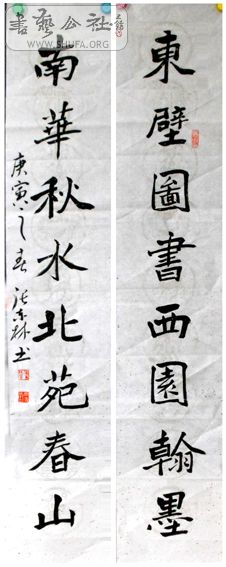 東壁圖書西園翰墨
南華秋水北苑春山
庚寅之春
書藝公社
WWW.SHUFA.ORG